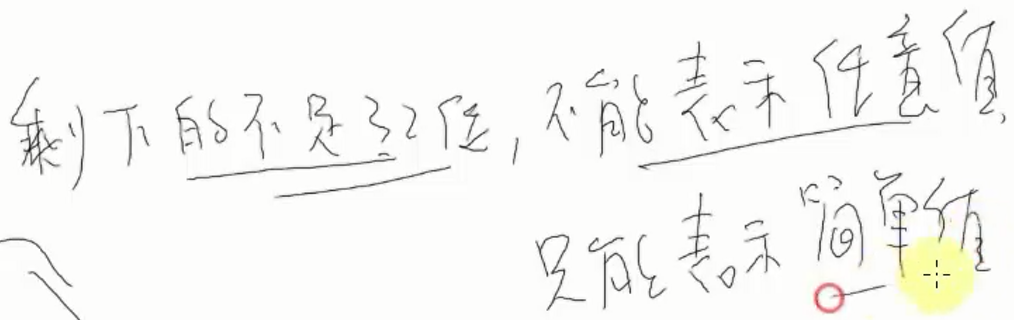 剩下的不足32位,不能表示任意值,
只能表示简单值